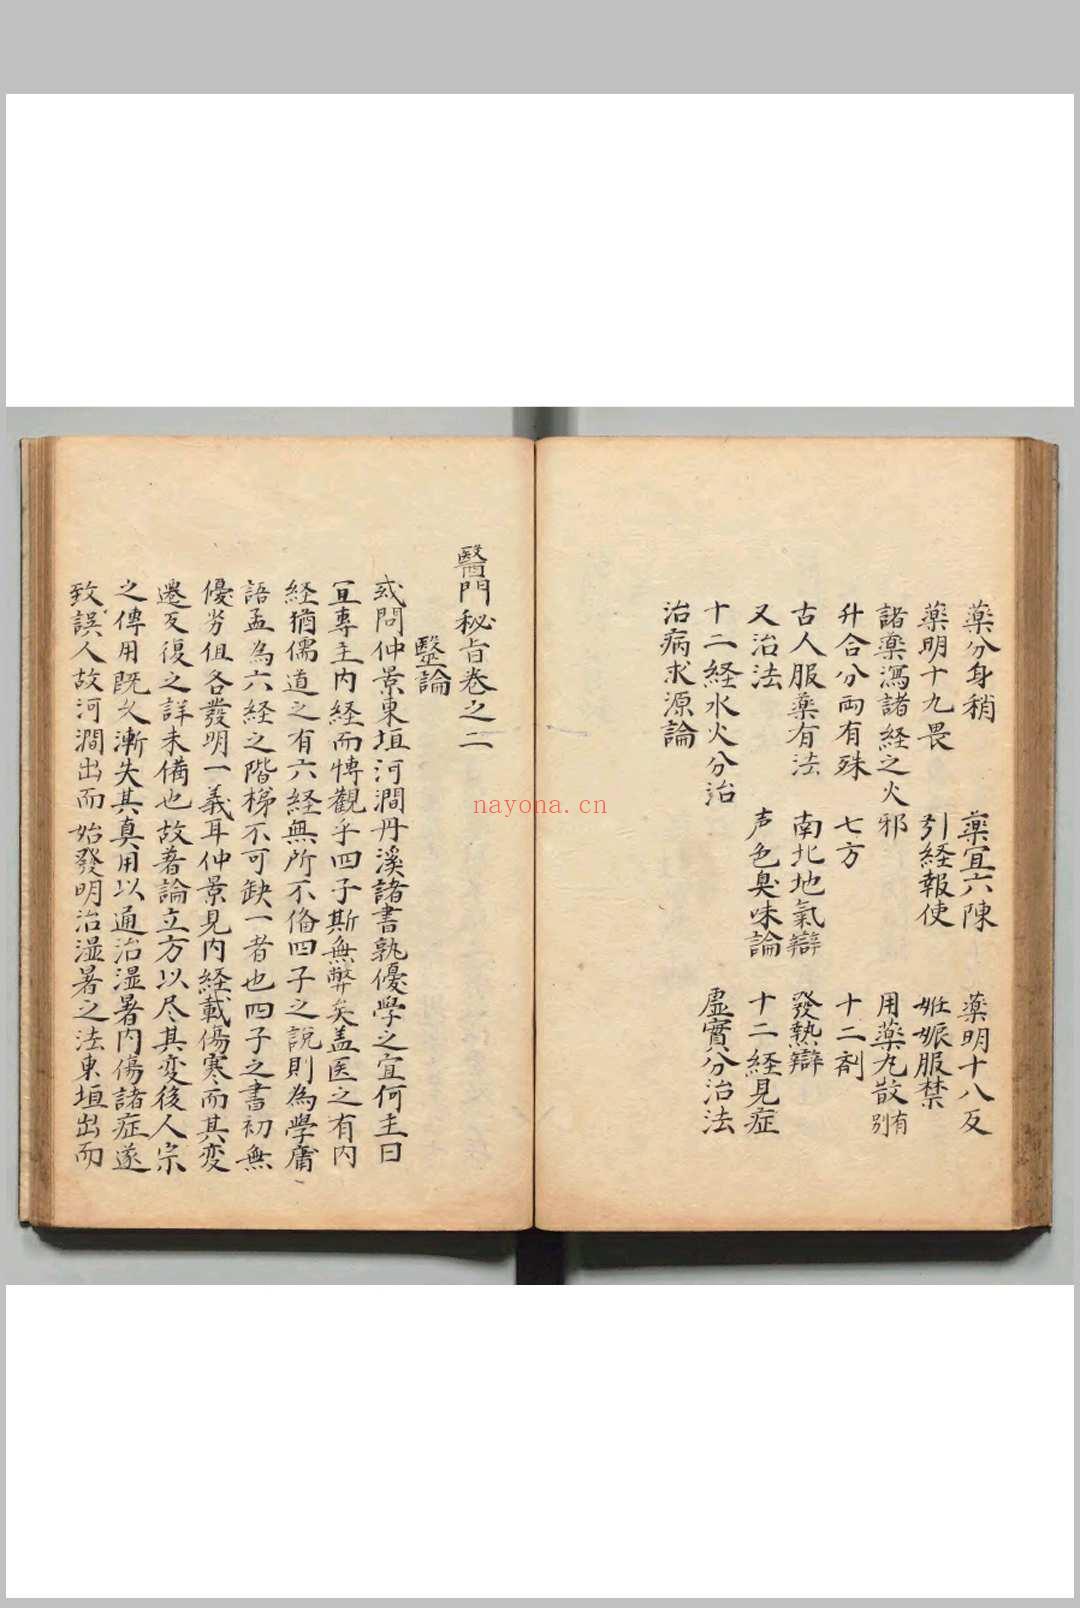 藥分身稍　藥宜六陳　藥明十八反
藥明十九畏　引経報使　姙娠服禁
諸藥瀉諸経之火邪　用藥丸散有別
升合分両有殊　七方　十二剤
古人服藥有法　南北地氣辯　發熱辯
又治法　声色臭味論　十二経見症
十二経水火分治　虛實分治法
治病求源論
醫門秘旨卷之二
醫論
或問仲景東垣河澗丹溪諸書孰優學之宜何主曰
宜專主内経而慱觀乎四子斯無弊矣盖医之有内
経猶儒道之有六経無所不俻四子之說則為學庸
語孟為六経之階梯不可缺一者也四子之書初無
優劣但各發明一義耳仲景見内経載傷寒而其変
遷反復之詳未備也故著論立方以尽其変後人宗
之傳用既久漸失其真用以通治湿暑内傷諸症遂
致誤人故河澗出而始發明治湿暑之法東垣出而
nayona.cn